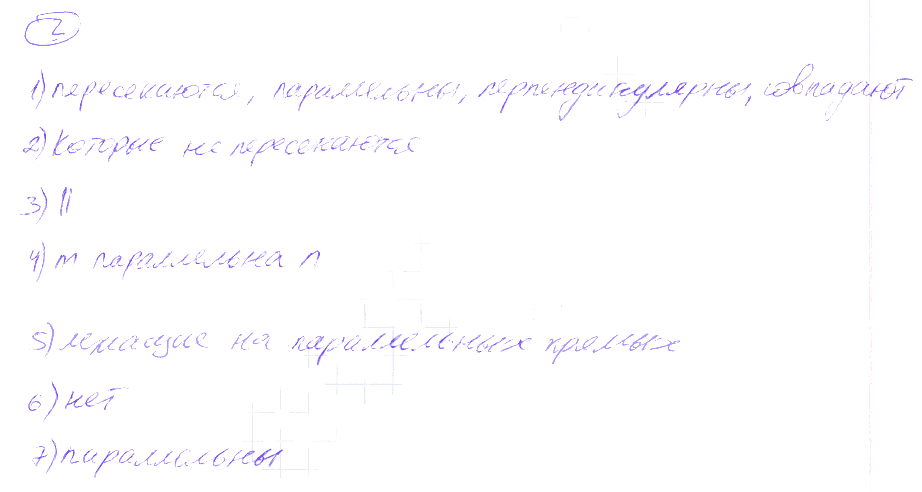 2
1) пересекаются, параллельны, перпендикулярны, совпадают
2) Которые не пересекаются
3) ||
4) m параллельна n
5) лежащие на параллельных прямых
6) нет
7) параллельны